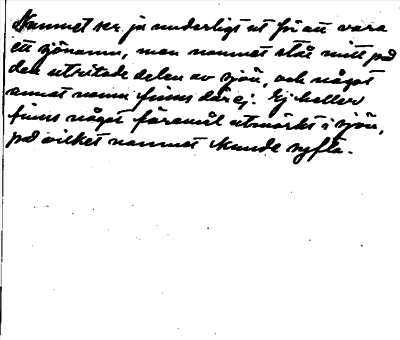 Namnet ser ju underligt ut för att vara
ett sjönamn, men namnet står mitt på
den utritade delen av sjön, och något
annat namn finns där ej. Ej heller
finns något föremål utmärkt i sjön,
på vilket namnet kunde syfta.